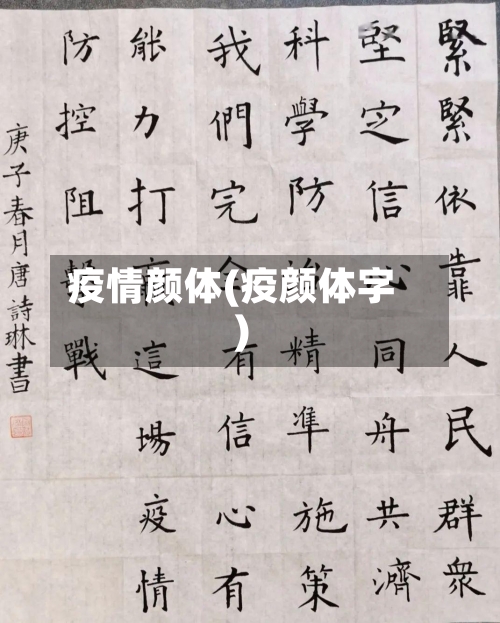 緊緊依靠人民群衆
堅定信心同舟共濟
科學防治精準施策
我們完全有信心有
能力打這場疫情
防控阻擊戰
庚子春月唐詩琳書
疫情颜体(疫颜体字
)